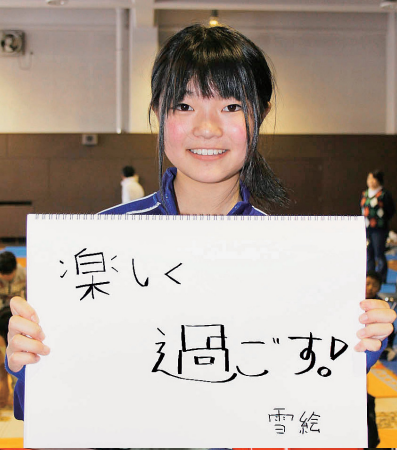 楽しく
過ごす!
雪絵